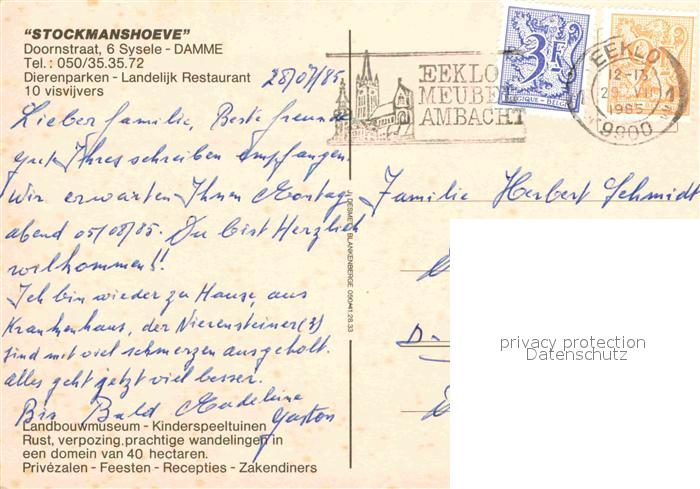 "STOCKMANSHOEVE"
Doornstraat, 6 Sysele - DAMME
Tel.: 050/35.35.72
Dierenparken - Landelijk Restaurant
10 visvijvers
28/07/85
Lieber familie, Beste freunde
gute Ihres schreiben empfangen.
Wir erwarten Ihnen Montag
abend 05/08/85. Du bist Herzlich
willkommen!!
Ich bin wieder zu Hause, aus
Krankenhaus, der Nierensteiner(3)
sind mit viel schmerzen ausgeholt.
Alles geht jetzt viel besser.
Bis Bald Madeleine
Gaston
Landbouwmuseum - Kinderspeeltuinen
Rust, verpozing, prachtige wandelingen in
een domein van 40 hectaren.
Privézalen - Feesten - Recepties - Zakendiners
DESMET, BLANKENBERGE 050/41.28.33
EEKLO
MEUBEL
AMBACHT
3F
BELGIQUE - BELGIË
EEKLO
1
1985
9900
Familie Herbert Schmidt
D-
privacy protection
Datenschutz